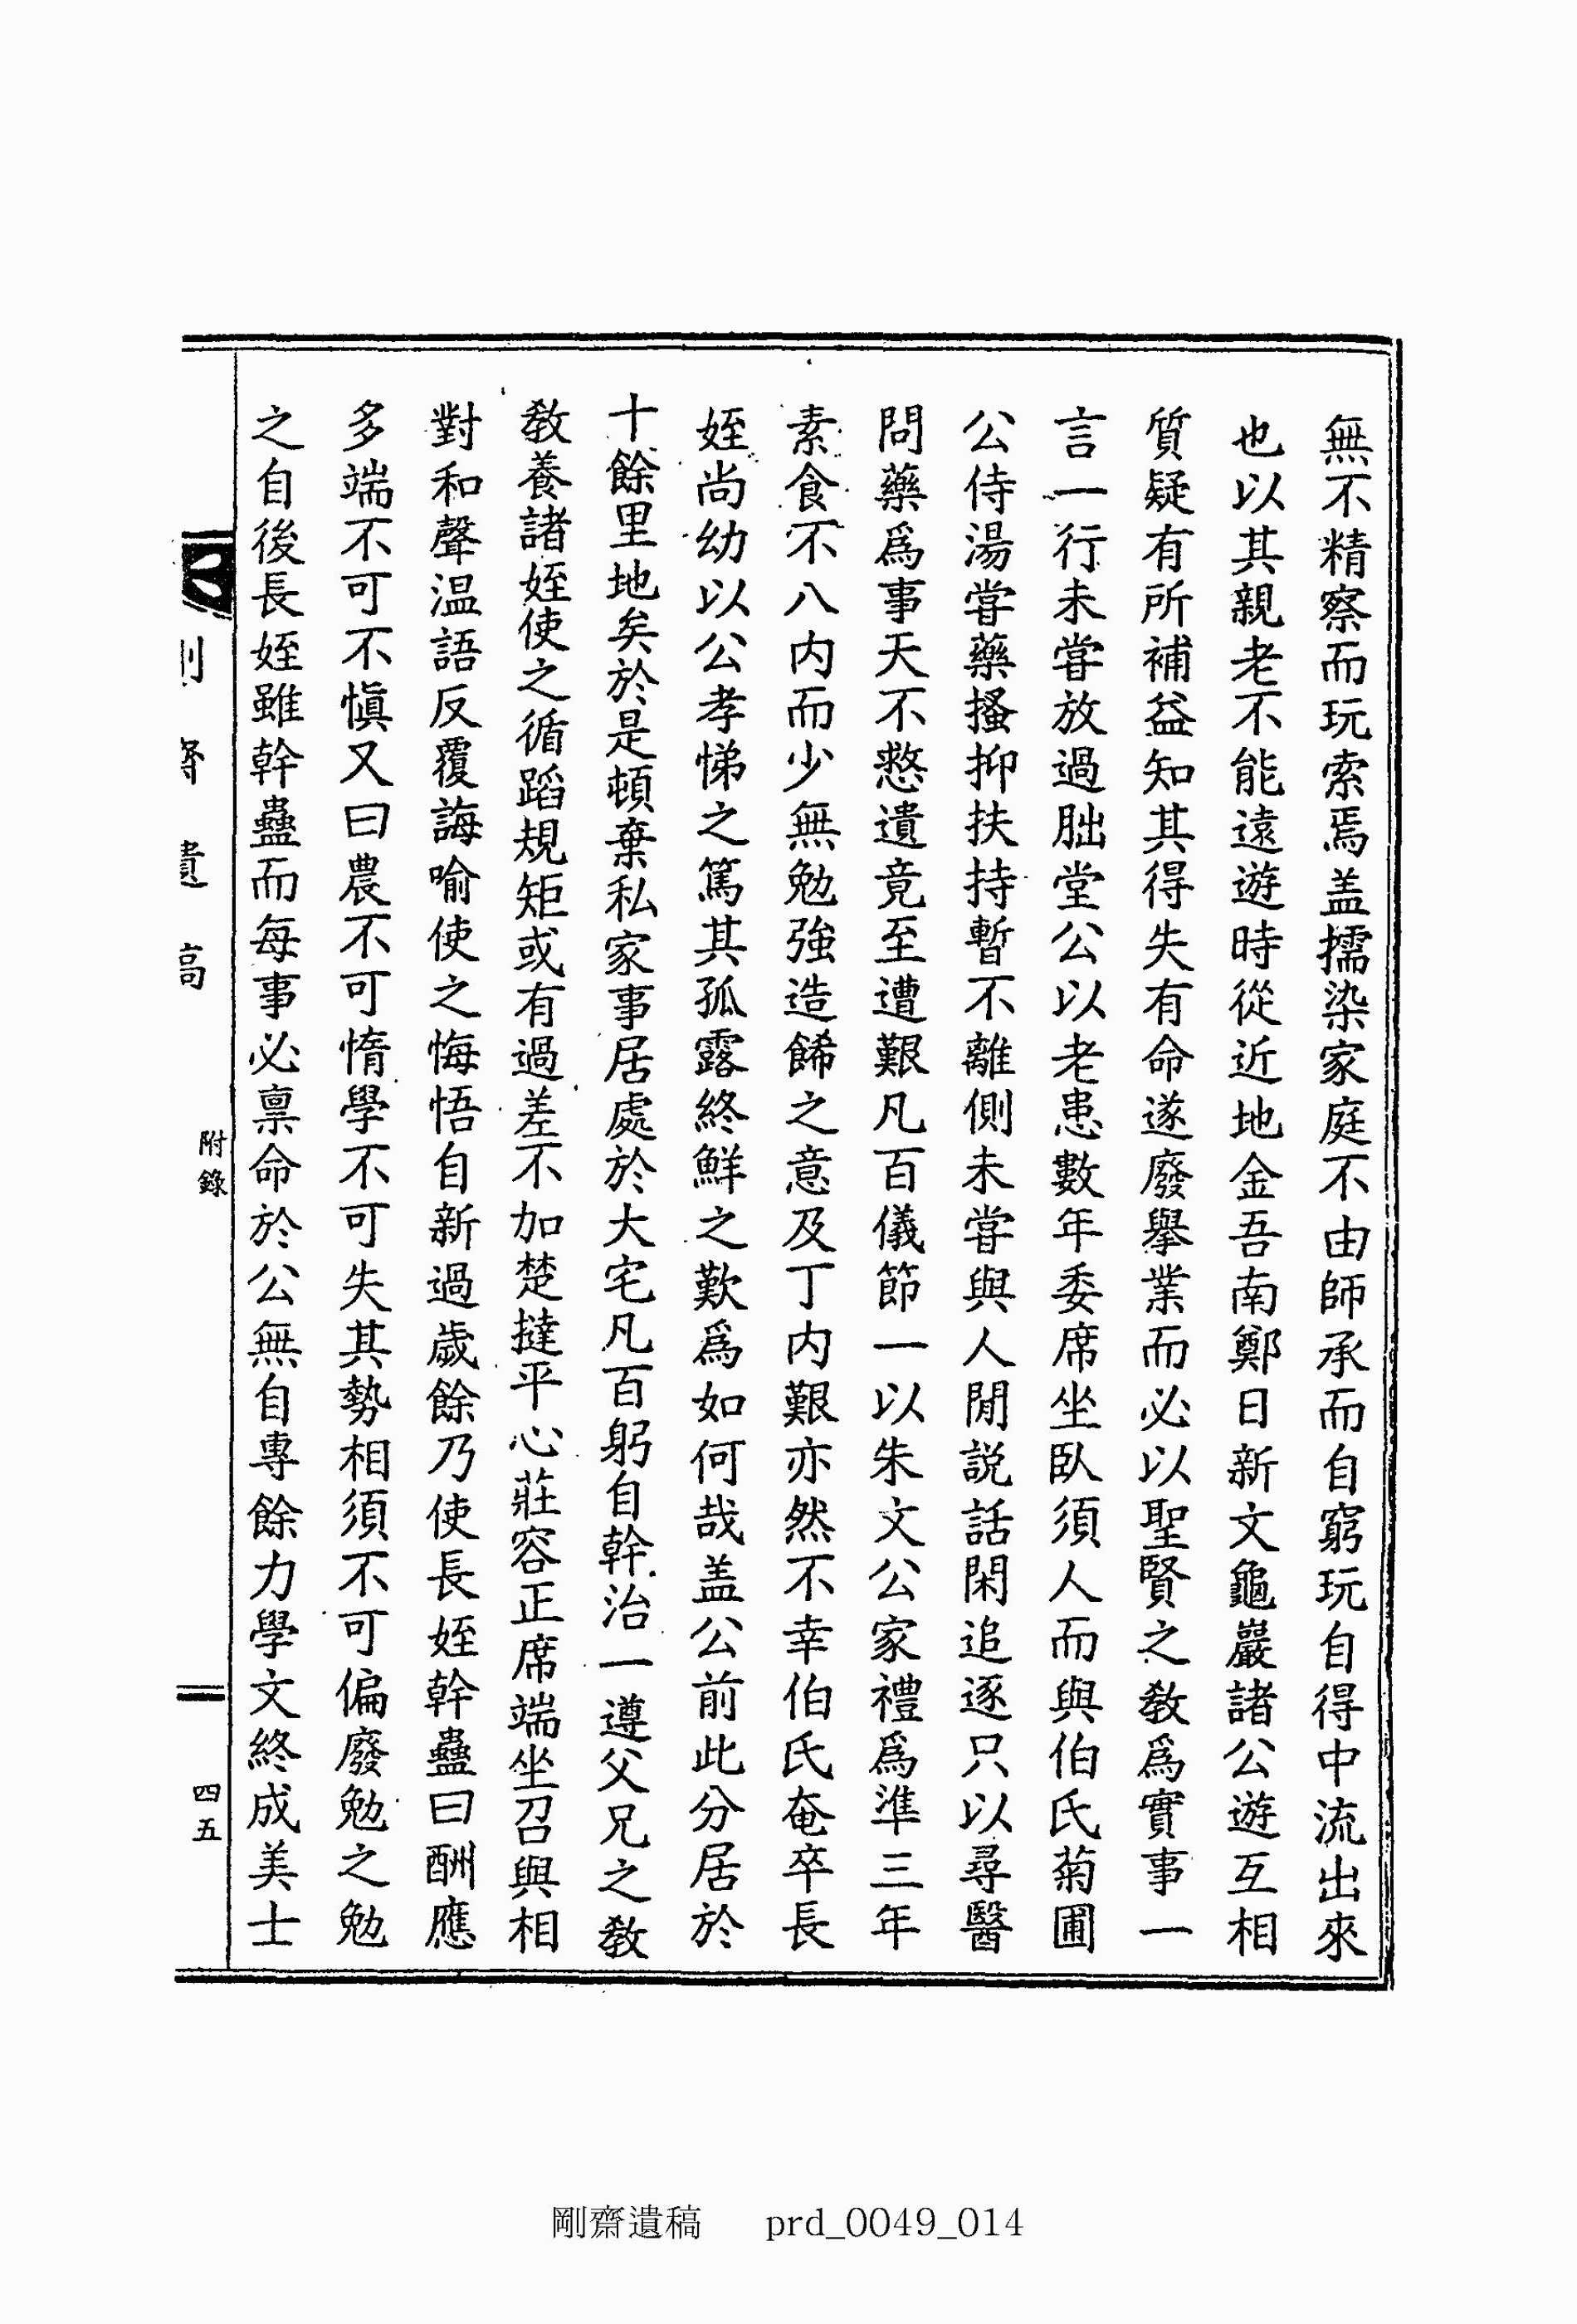 無不精察而玩索焉盖擩染家庭不由師承而自窮玩自得中流出來
也以其親老不能遠遊時從近地金吾南鄭日新文龜巖諸公遊互相
質疑有所補益知其得失有命遂廢擧業而必以聖賢之敎爲實事一
言一行未甞放過朏堂公以老患數年委席坐臥須人而與伯氏菊圃
公侍湯甞藥搔抑扶持暫不離側未甞與人閒説話閑追逐只以尋醫
問藥爲事天不憗遺竟至遭艱凡百儀節一以朱文公家禮爲準三年
素食不入內而少無勉強造餙之意及丁内艱亦然不幸伯氏奄卒長
姪尚幼以公孝悌之篤其孤露終鮮之歎爲如何哉盖公前此分居於
十餘里地矣於是頓棄私家事居處於大宅凡百躬自幹治一遵父兄之敎
敎養諸姪使之循蹈規矩或有過差不加楚撻平心莊容正席端坐召與相
對和聲温語反覆誨喻使之悔悟自新過歲餘乃使長姪幹蠱曰酬應
多端不可不愼又曰農不可惰學不可失其勢相須不可偏廢勉之勉
之自後長姪雖幹蠱而每事必禀命於公無自專餘力學文終成美士
剛齋遺稿 附錄 四五
剛齋遺稿 prd_0049_014